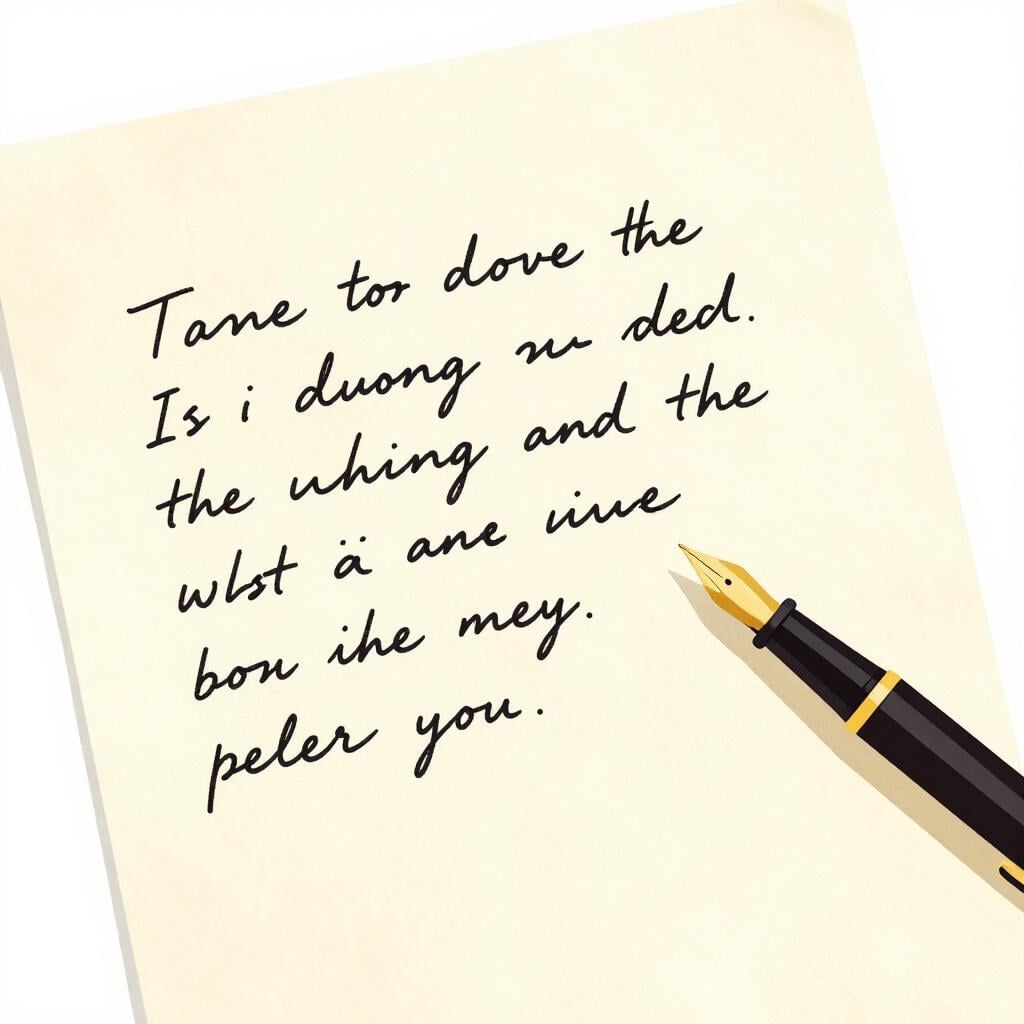 Tane tor dove the
Is i duong nu ded.
the uhing and the
wlst ä ane viue
bou ihe mey.
peler you.